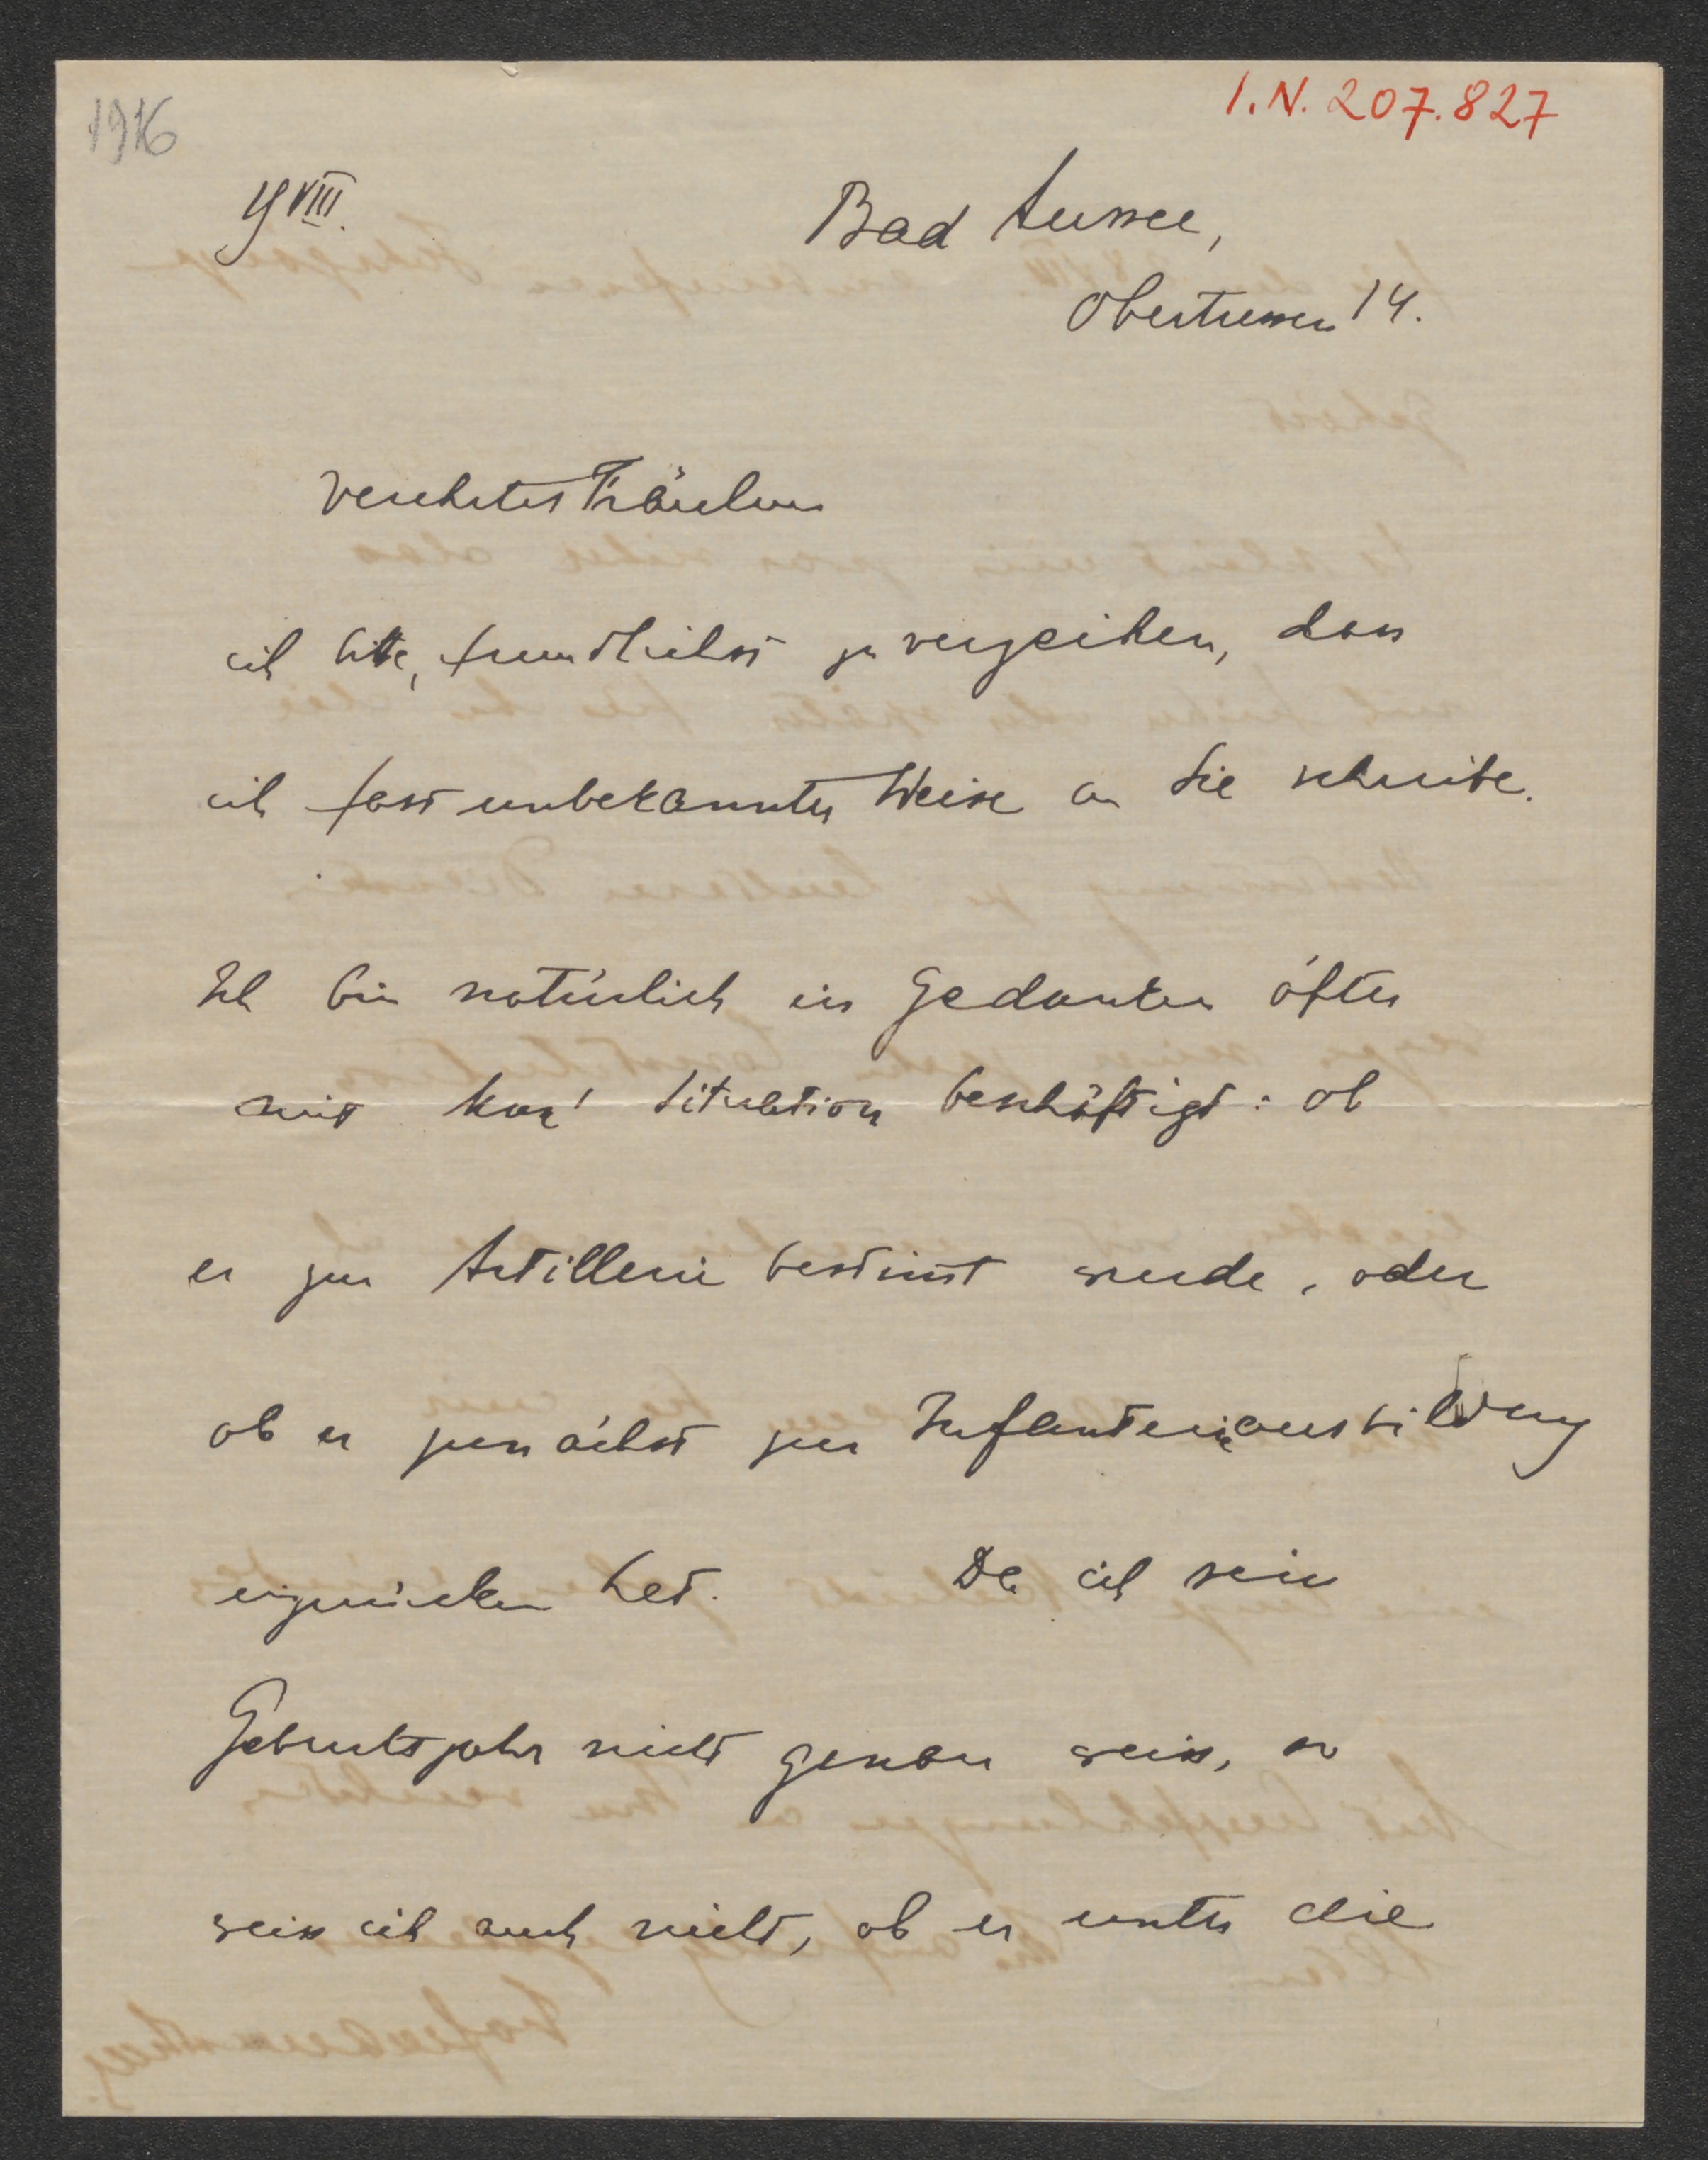 1916
I.N. 207.827
9 VIII.
Bad Aussee,
Obertressen 14.
verehrtes Fräulein
ich bitte, freundlichst zu verzeihen, dass
ich fast unbekannter Weise an Sie schreibe.
Ich bin natürlich in Gedanken öfter
mit Situation beschäftigt: ob
er zur Artillerie bestimt wurde, oder
ob er zunächst zur Infanterieausbildung
einzurücken hat. Da ich sein
Geburtsjahr nicht genau weiss, so
weiss ich auch nicht, ob er unter die